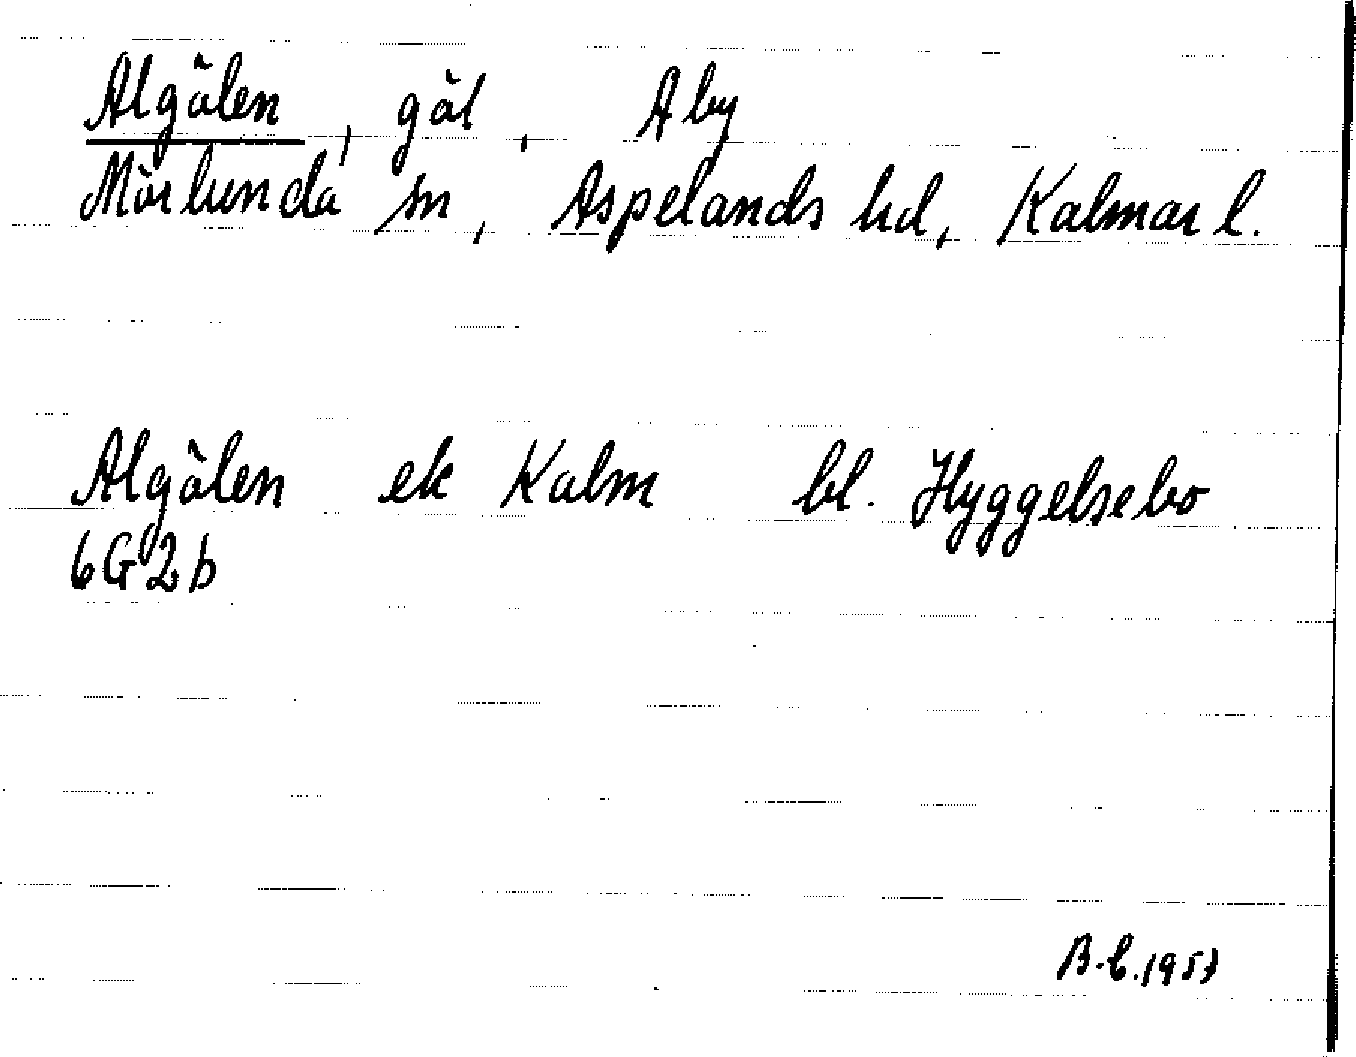 Algölen, göl, Aby
Mörlunda sn, Aspelands hd, Kalmar l.
Algölen ek Kalm bl. Hyggelsebo
6G2b
B.L. 1957